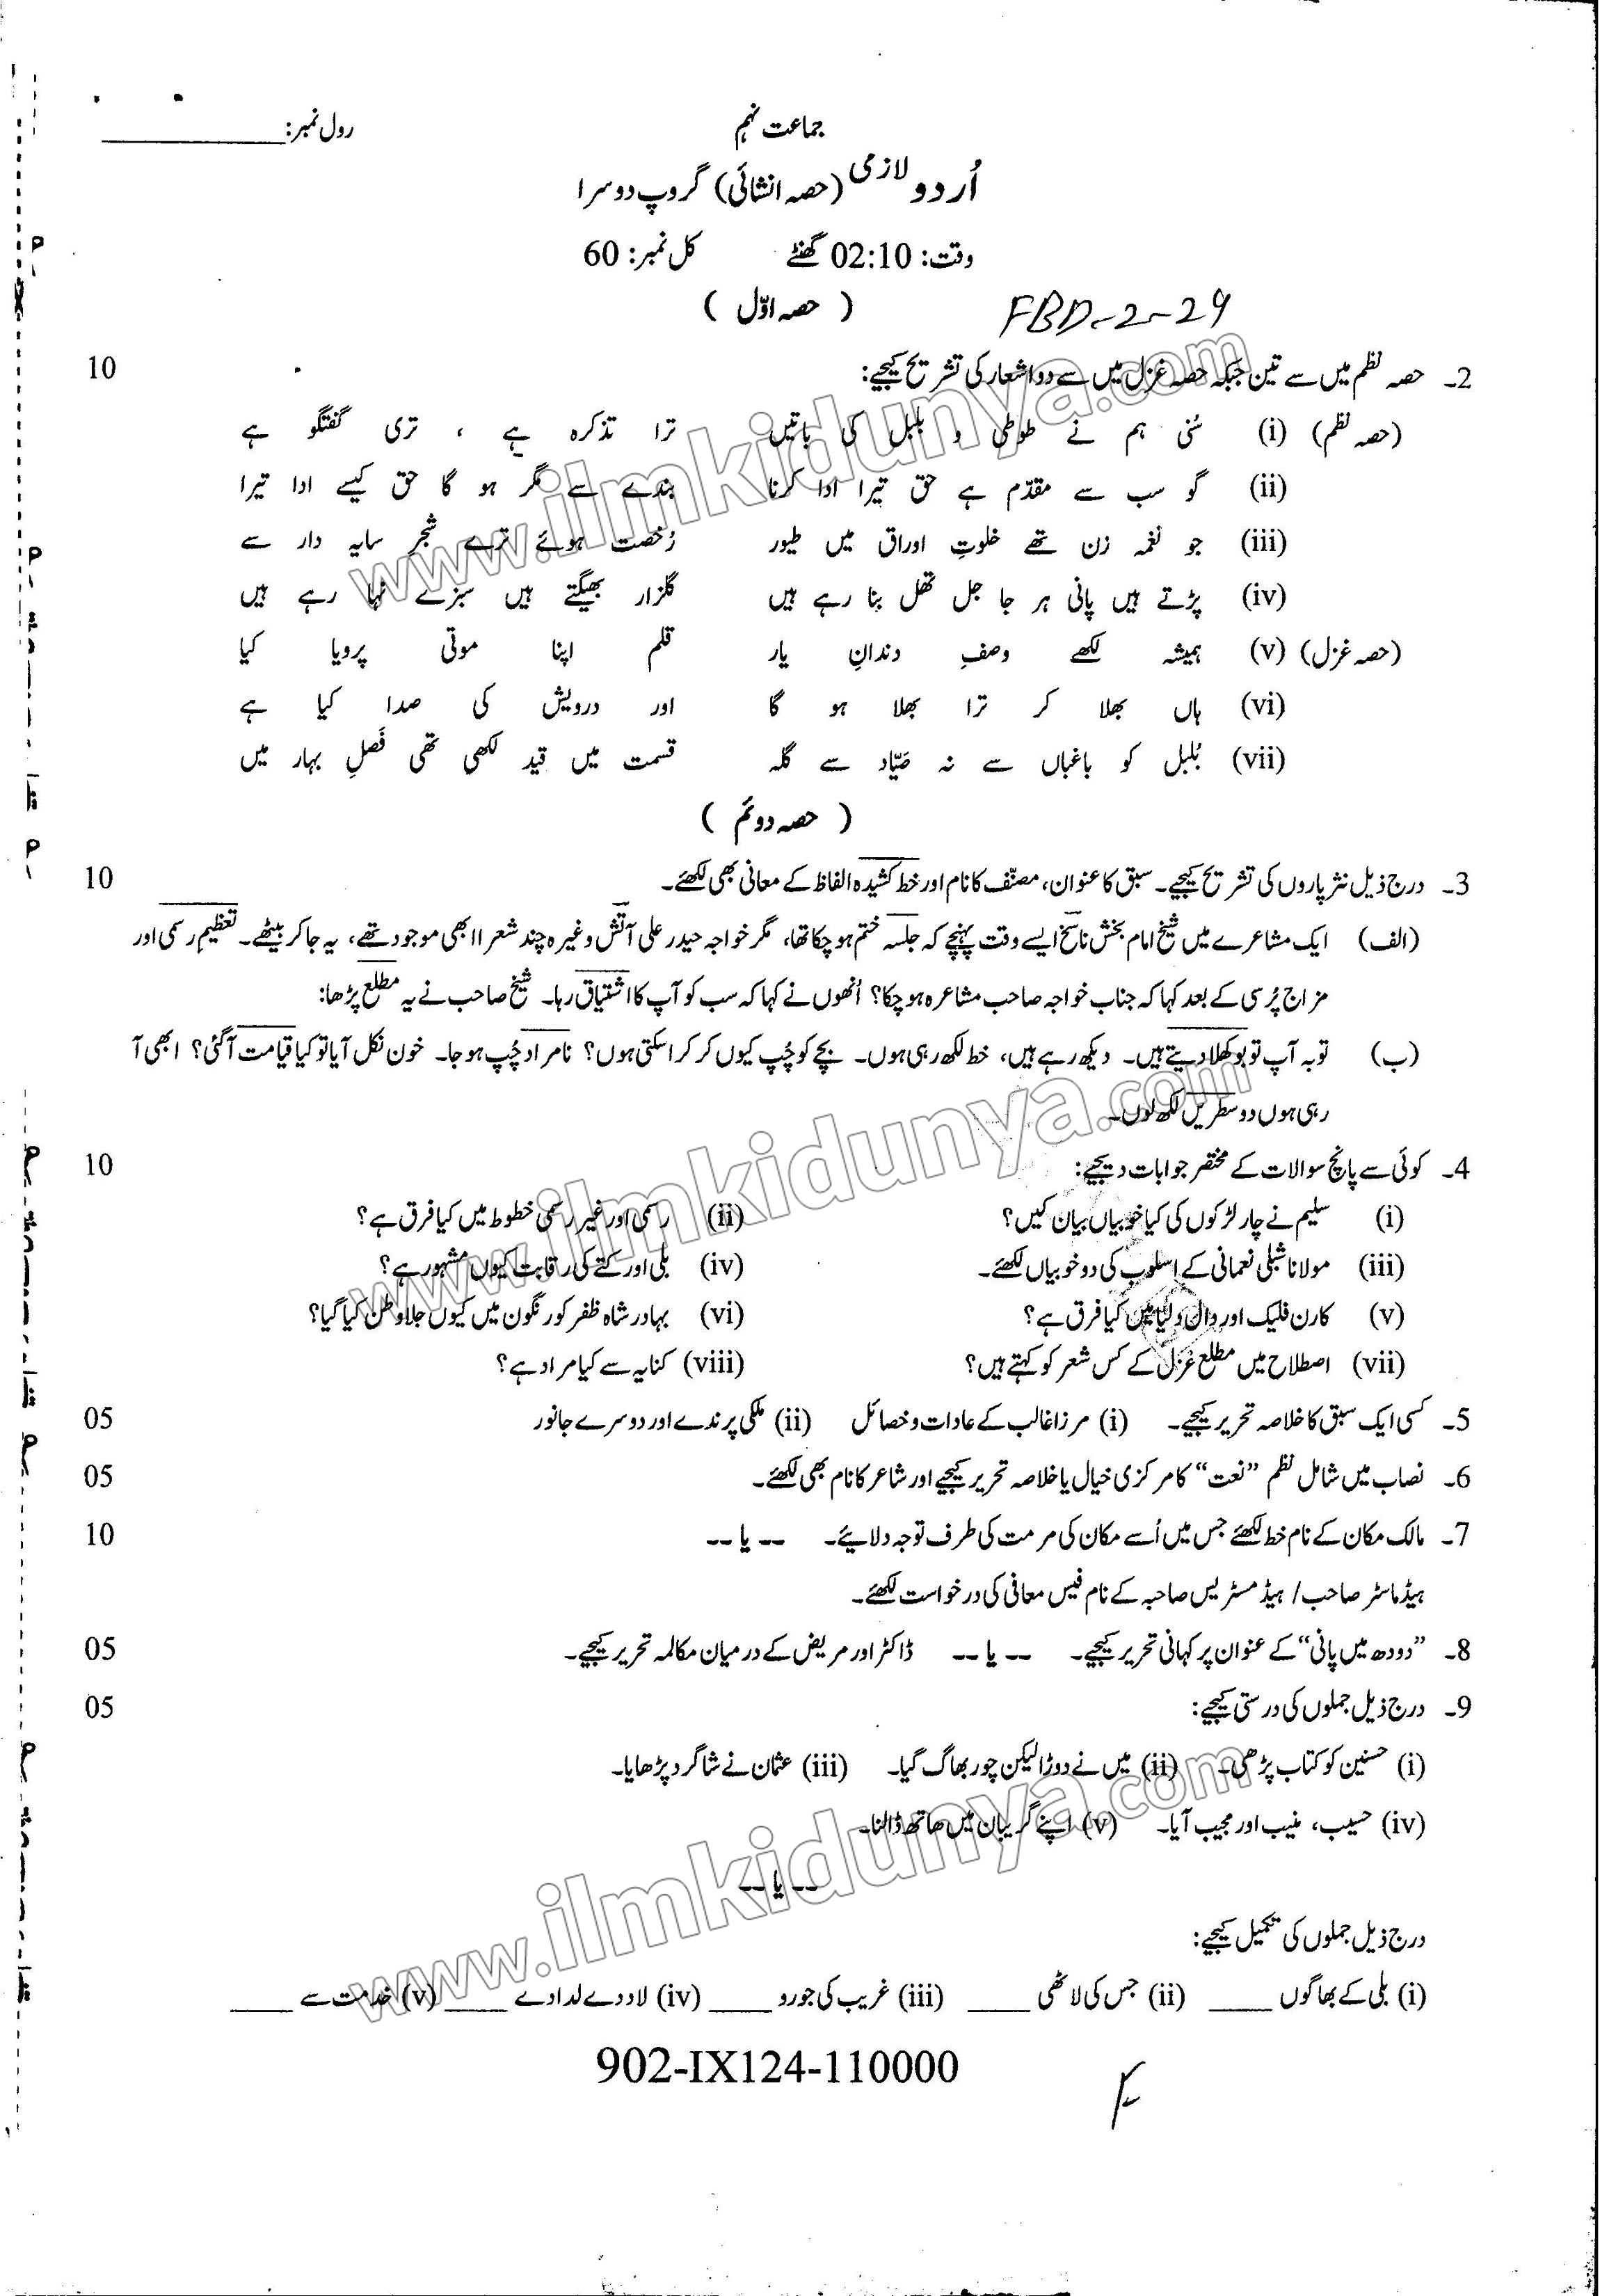 جماعت نہم
رول نمبر: ____________
اُردو لازمی (حصہ انشائی) گروپ دوسرا
وقت: 02:10 گھنٹے کل نمبر: 60
( حصہ اوّل )
FBD-2-24
2۔ حصہ نظم میں سے تین جبکہ حصہ غزل میں سے دو اشعار کی تشریح کیجیے: 10
(حصہ نظم) (i) سُنی ہم نے طوطی و بلبل کی باتیں ترا تذکرہ ہے ، تری گفتگو ہے
(ii) گو سب سے مقدّم ہے حق تیرا ادا کرنا بندے سے مگر ہو گا حق کیسے ادا تیرا
(iii) جو نغمہ زن تھے خلوتِ اوراق میں طیور رُخصت ہوئے ترے شجرِ سایہ دار سے
(iv) پڑتے ہیں پانی ہر جا جل تھل بنا رہے ہیں گلزار بھیگتے ہیں سبزے نہا رہے ہیں
(حصہ غزل) (v) ہمیشہ لکھے وصفِ دندانِ یار قلم اپنا موتی پرویا کیا
(vi) ہاں بھلا کر ترا بھلا ہو گا اور درویش کی صدا کیا ہے
(vii) بُلبل کو باغباں سے نہ صَیّاد سے گلہ قسمت میں قید لکھی تھی فَصلِ بہار میں
( حصہ دوئم )
3۔ درج ذیل نثر پاروں کی تشریح کیجیے۔ سبق کا عنوان، مصنّف کا نام اور خط کشیدہ الفاظ کے معانی بھی لکھئے۔ 10
(الف) ایک مشاعرے میں شیخ امام بخش ناسخ ایسے وقت پہنچے کہ جلسہ ختم ہو چکا تھا، مگر خواجہ حیدر علی آتش وغیرہ چند شعرا ابھی موجود تھے، یہ جا کر بیٹھے۔ تعظیمِ رسمی اور
مزاج پُرسی کے بعد کہا کہ جناب خواجہ صاحب مشاعرہ ہو چکا؟ اُنھوں نے کہا کہ سب کو آپ کا اشتیاق رہا۔ شیخ صاحب نے یہ مطلع پڑھا:
(ب) توبہ آپ تو بوکھلا دیتے ہیں۔ دیکھ رہے ہیں، خط لکھ رہی ہوں۔ بچے کو چُپ کیوں کر کرا سکتی ہوں؟ نامراد چُپ ہو جا۔ خون نکل آیا تو کیا قیامت آ گئی؟ ابھی آ
رہی ہوں دو سطریں لکھ لوں۔
4۔ کوئی سے پانچ سوالات کے مختصر جوابات دیجیے: 10
(i) سلیم نے چار لڑکوں کی کیا خوبیاں بیان کیں؟ (ii) رسمی اور غیر رسمی خطوط میں کیا فرق ہے؟
(iii) مولانا شبلی نعمانی کے اسلوب کی دو خوبیاں لکھئے۔ (iv) بلی اور کتے کی رقابت کیوں مشہور ہے؟
(v) کارن فلیک اور دال دلیا میں کیا فرق ہے؟ (vi) بہادر شاہ ظفر کو رنگون میں کیوں جلا وطن کیا گیا؟
(vii) اصطلاح میں مطلع غزل کے کس شعر کو کہتے ہیں؟ (viii) کنایہ سے کیا مراد ہے؟
5۔ کسی ایک سبق کا خلاصہ تحریر کیجیے۔ (i) مرزا غالب کے عادات و خصائل (ii) ملکی پرندے اور دوسرے جانور 05
6۔ نصاب میں شامل نظم ”نعت“ کا مرکزی خیال یا خلاصہ تحریر کیجیے اور شاعر کا نام بھی لکھئے۔ 05
7۔ مالک مکان کے نام خط لکھئے جس میں اُسے مکان کی مرمت کی طرف توجہ دلائیے۔ -- یا -- 10
ہیڈ ماسٹر صاحب / ہیڈ مسٹریس صاحبہ کے نام فیس معافی کی درخواست لکھئے۔
8۔ ”دودھ میں پانی“ کے عنوان پر کہانی تحریر کیجیے۔ -- یا -- ڈاکٹر اور مریض کے درمیان مکالمہ تحریر کیجیے۔ 05
9۔ درج ذیل جملوں کی درستی کیجیے: 05
(i) حسنین کو کتاب پڑھی۔ (ii) میں نے دوڑا لیکن چور بھاگ گیا۔ (iii) عثمان نے شاگرد پڑھایا۔
(iv) حسیب، منیب اور مجیب آیا۔ (v) اپنے گریبان میں ہاتھ ڈالنا۔
-- یا --
درج ذیل جملوں کی تکمیل کیجیے:
(i) بلی کے بھاگوں ____ (ii) جس کی لاٹھی ____ (iii) غریب کی جورو ____ (iv) لاد دے لدا دے ____ (v) خدمت سے ____
902-IX124-110000
www.ilmkidunya.com
www.ilmkidunya.com
www.ilmkidunya.com